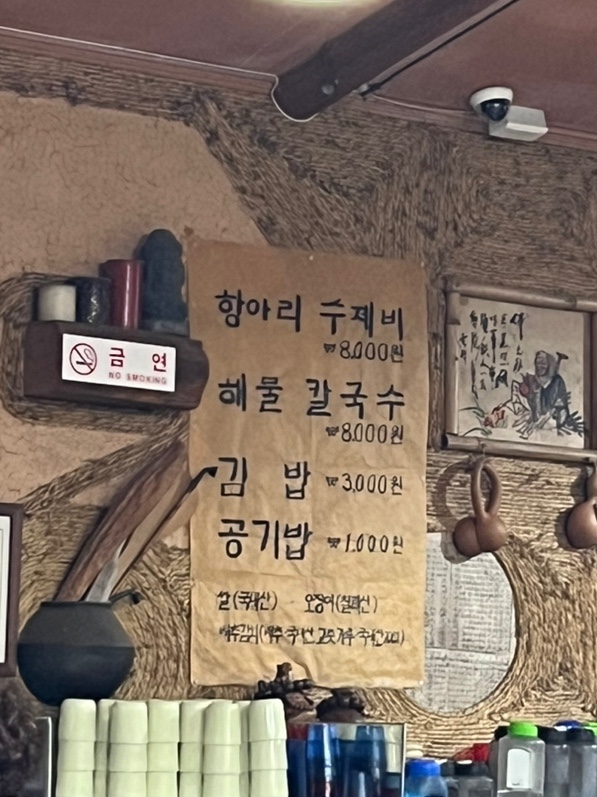 항아리 수제비
₩8,000원
해물 칼국수
₩8,000원
김 밥 ₩3,000원
공기밥 ₩1,000원
쌀(국내산) 오징어(칠레산)
배추김치(배추 국내산, 고춧가루 국내산
금 연
NO SMOKING